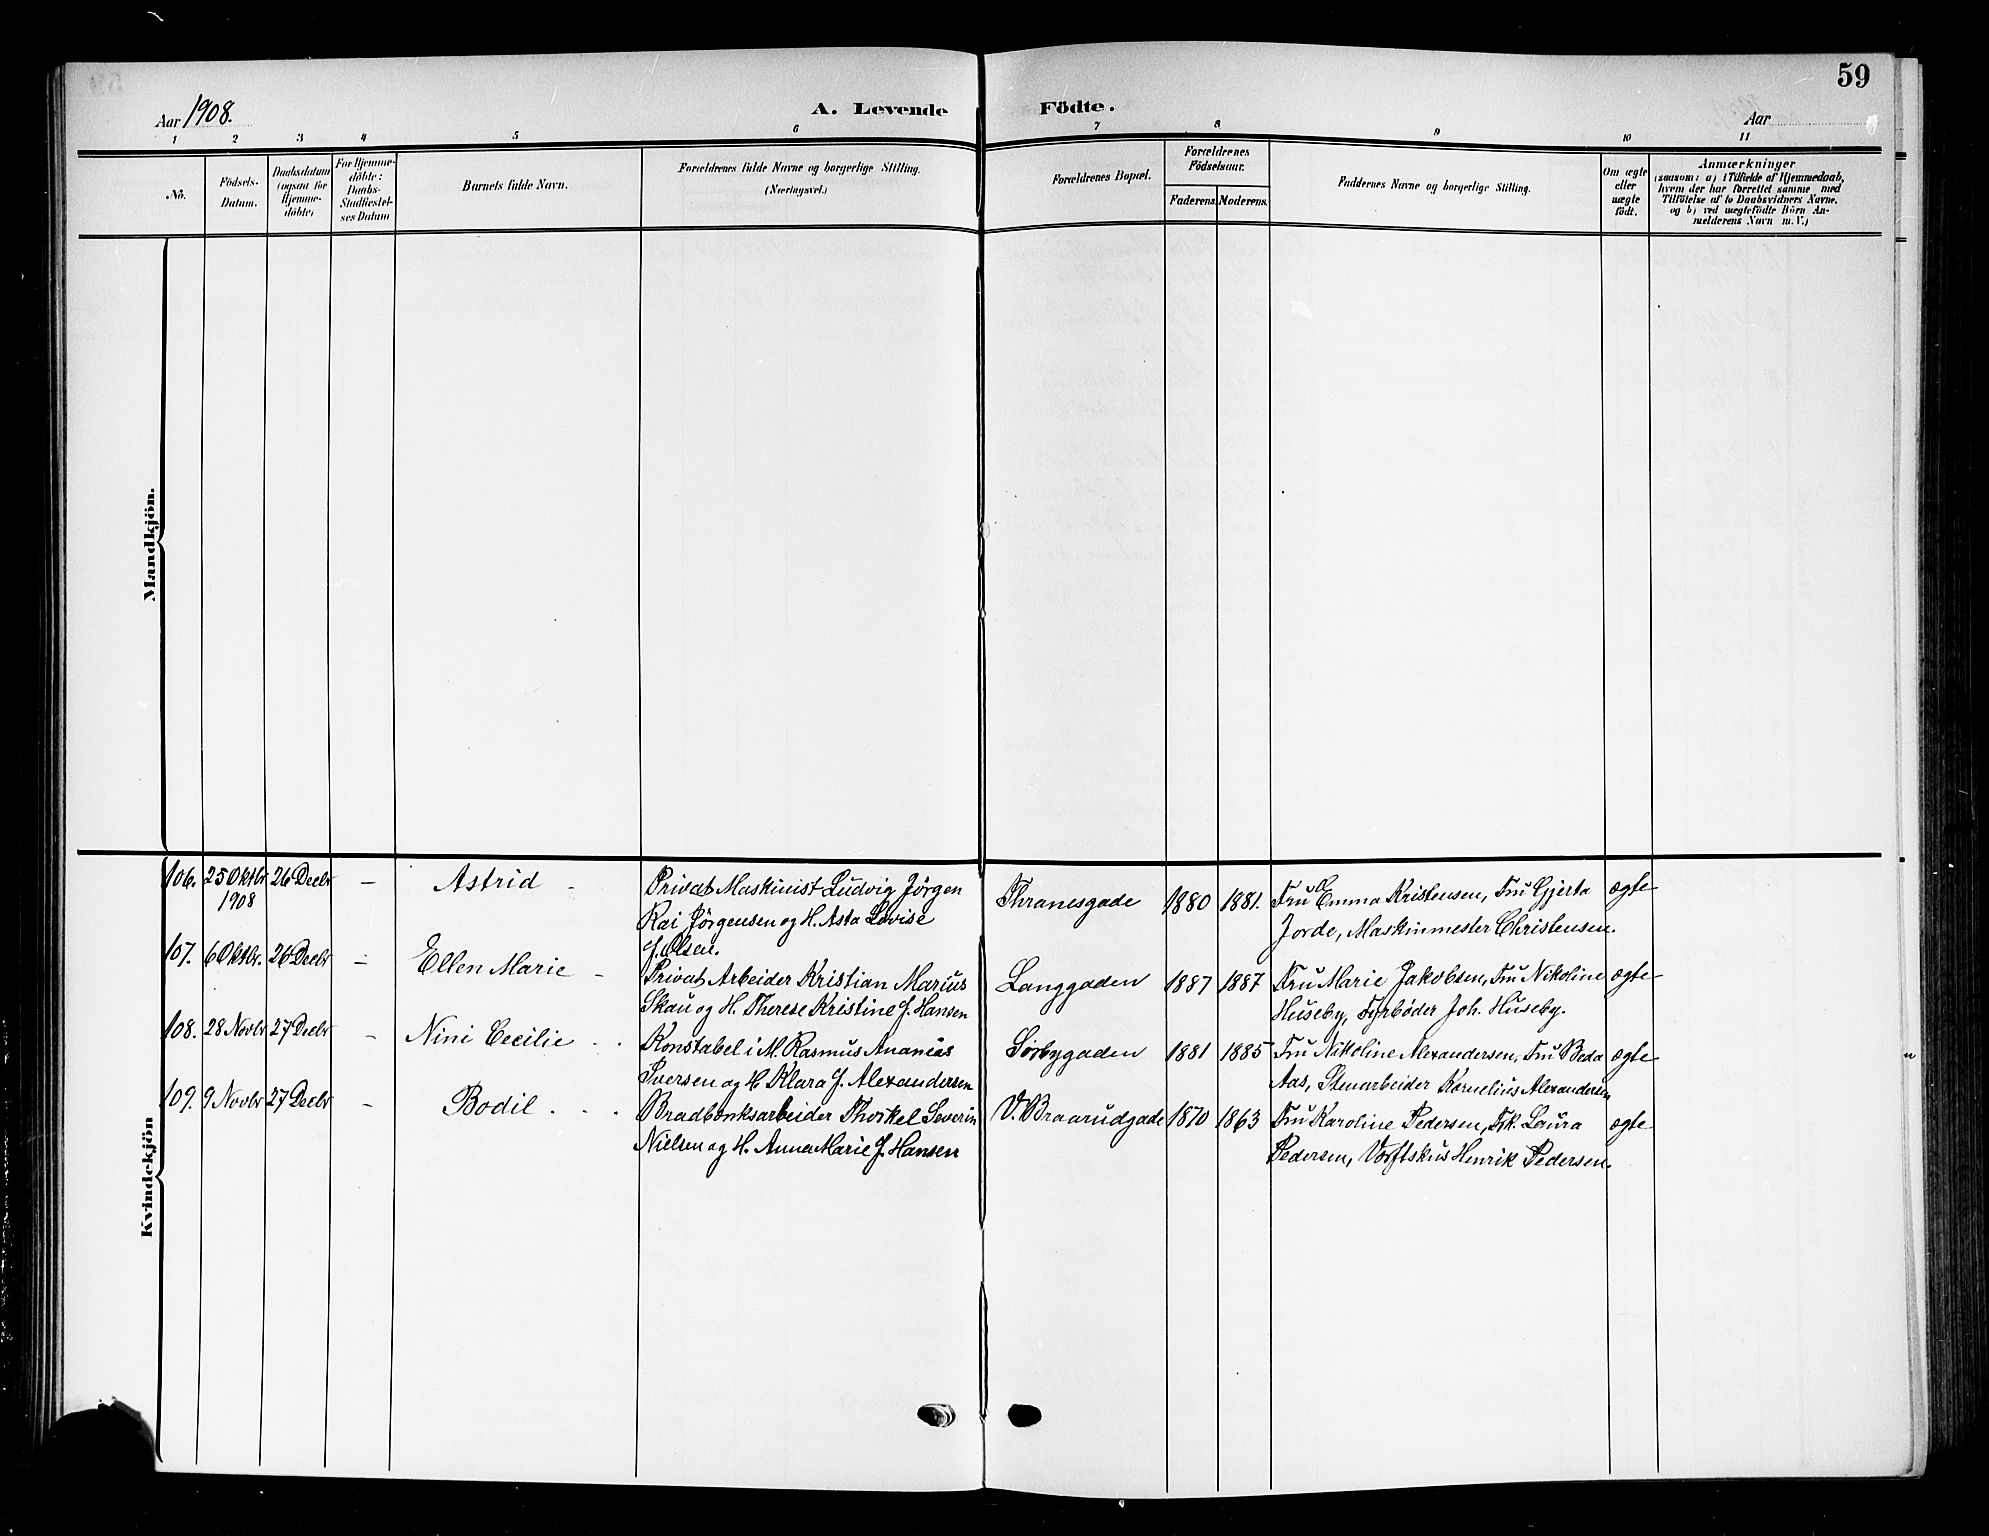 59
Aar 1908.
A. Levende Födte.
Aar
1 2 3 4 5 6 7 8 9 10 11
No.
Födsels-
Datum.
Daabsdatum
(ogsaa for
Hjemme-
döbte)
For Hjemme-
döbte:
Daabs-
Stadfæstel-
ses Datum
Barnets fulde Navn.
Forældrenes fulde Navne og borgerlige Stilling.
(Næringsvei.)
Forældrenes Bopæl.
Forældrenes
Födselsaar.
Faderens. Moderens.
Faddernes Navne og borgerlige Stilling.
Om ægte
eller
uægte
födt.
Anmærkninger
(saasom: a) i Tilfælde af Hjemmedaab,
hvem der har forrettet samme med
Tilföielse af to Daabsvidners Navne,
og b) ved uægtefödte Börn An-
melderens Navn m. V.)
Mandkjön.
Kvindekjön
106. 25 Oktbr 26 Decbr – Astrid Privat Maskinist Ludvig Jörgen Thranesgade 1880 1881. Fru Emma Kristensen, Fru Gjerta ægte
1908 Kai Jörgensen og H. Asta Lovise Jorde, Maskinmester Christensen.
J. Olsen.
107. 6 Oktbr. 26 Decbr – Ellen Marie – Privat Arbeider Kristian Marius Langgaden 1887 1887 Fru Marie Jakobsen, Fru Nikoline ægte
Skau og H. Therese Kristine J. Hansen Huseby, Fyrböder Joh. Huseby.
108. 28 Novbr 27 Decbr – Nini Cecilie Konstabel i M. Rasmus Ananias Sörbygaden 1881 1885 Fru Nikoline Alexandersen, Fru Beda ægte
Iversen og H Klara J. Alexandersen Aas, Stenarbeider Kornelius Alexandersen
109. 9 Novbr 27 Decbr – Bodil Bradbænksarbeider Thorkel Severin V. Braarudgade 1870 1863 Fru Karoline Pedersen, Frk. Laura ægte
Nielsen og H. Anna Marie J. Hansen Pedersen, Værftskus Henrik Pedersen.